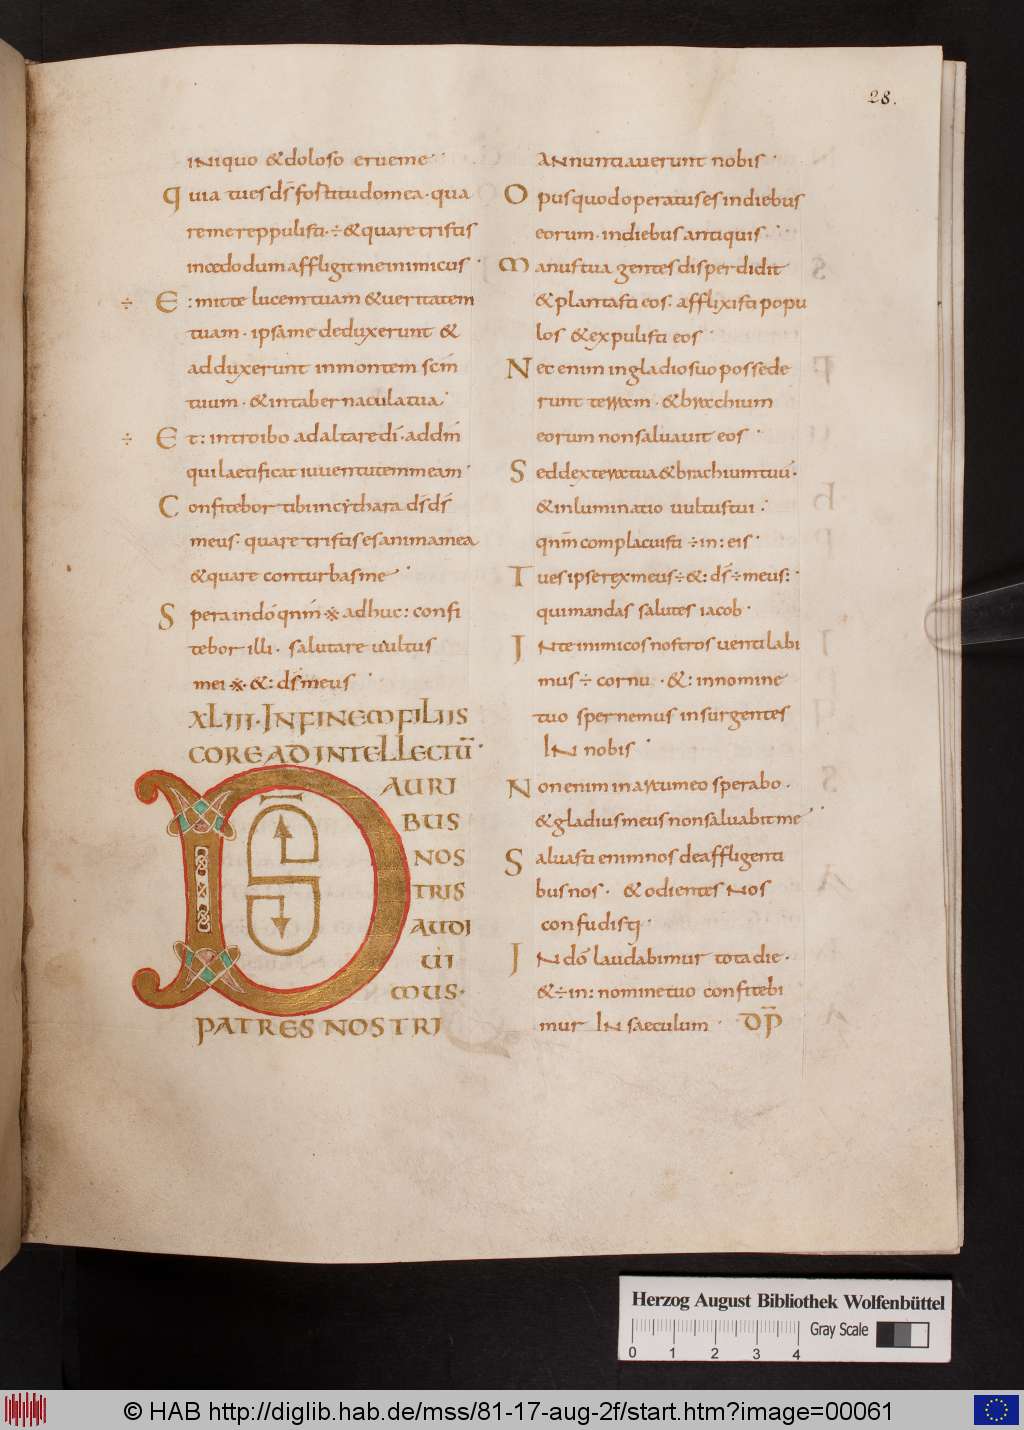 28.
iniquo & doloso erueme
Quia tu es d̄s fortitudo mea · qua
reme reppulisti · ÷ & quare tristis
incedo dum affligit me inimicus
÷ E : mitte lucem tuam & ueritatem
tuam · ipsa me deduxerunt &
adduxerunt in montem scm̄
tuum · & in tabernacula tua
÷ Et : introibo ad altare dī · ad dm̄
qui laetificat iuuentutem meam
Confitebor tibi in cythara d̄s d̄s
meus · quare tristis es anima mea
& quare conturbas me
Spera in dō qnm̄ ※ adhuc : confi
tebor illi · salutare uultus
mei ※ · & : d̄s meus
XLIII · IN FINEM FILIIS
CORE AD INTELLECTŪ ·
D̄S AURI
BUS
NOS
TRIS
AUDI
UI
MUS ·
PATRES NOSTRI
annuntiauerunt nobis
Opus quod operatus es in diebus
eorum · in diebus antiquis
Manus tua gentes disperdidit
& plantasti eos : afflixisti popu
los & expulisti eos
Nec enim in gladio suo possede
runt terram · & brachium
eorum non saluauit eos
Sed dextera tua & brachium tuū ·
& inluminatio uultus tui :
qnm̄ complacuisti ÷ in : eis
Tu es ipse rex meus ÷ & : d̄s ÷ meus :
qui mandas salutes iacob ·
In te inimicos nostros uentilabi
mus ÷ cornu · & : in nomine
tuo spernemus insurgentes
IN nobis
Non enim in arcu meo sperabo ·
& gladius meus non saluabit me
Saluasti enim nos de affligenti
bus nos · & odientes nos
confudisti ·
In dō laudabimur tota die ·
& ÷ in : nomine tuo confitebi
mur IN saeculum · DP̄
Herzog August Bibliothek Wolfenbüttel
Gray Scale
0 1 2 3 4
© HAB http://diglib.hab.de/mss/81-17-aug-2f/start.htm?image=00061